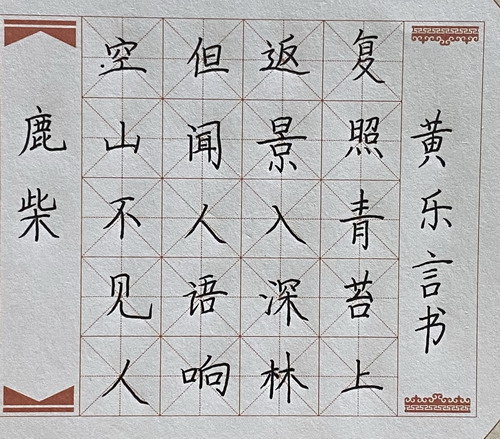 鹿柴
空山不见人
但闻人语响
返景入深林
复照青苔上
黄乐言书